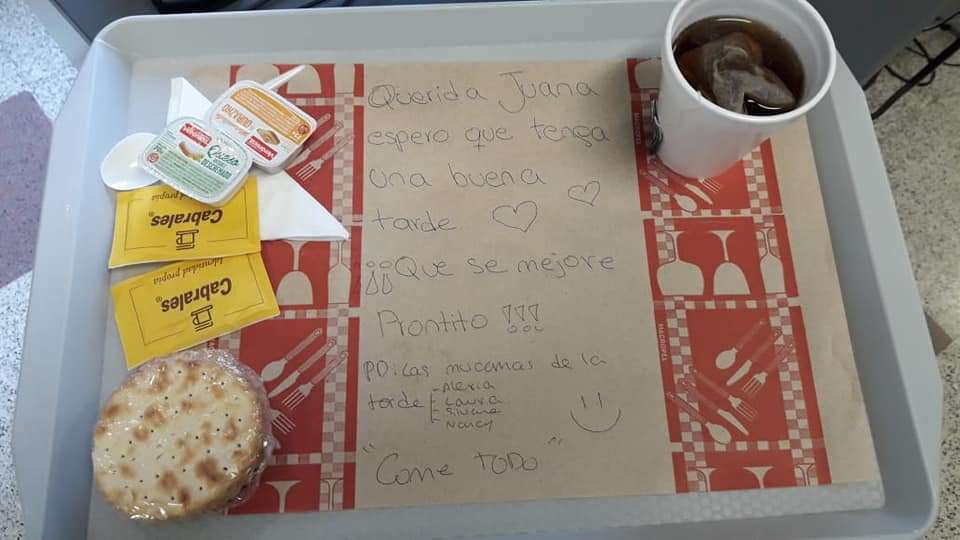 Querida Juana
espero que tenga
una buena
tarde
¡¡Que se mejore
Prontito !!!
PD: Las mucamas de la
tarde
- Alexia
- Laura
- Silvane
- Nancy
"Come TODO"
Cabrales
Identidad propia
Cabrales
Identidad propia
Queso
DESCREMADO
DURAZNO
MACROPEL
MACROPEL